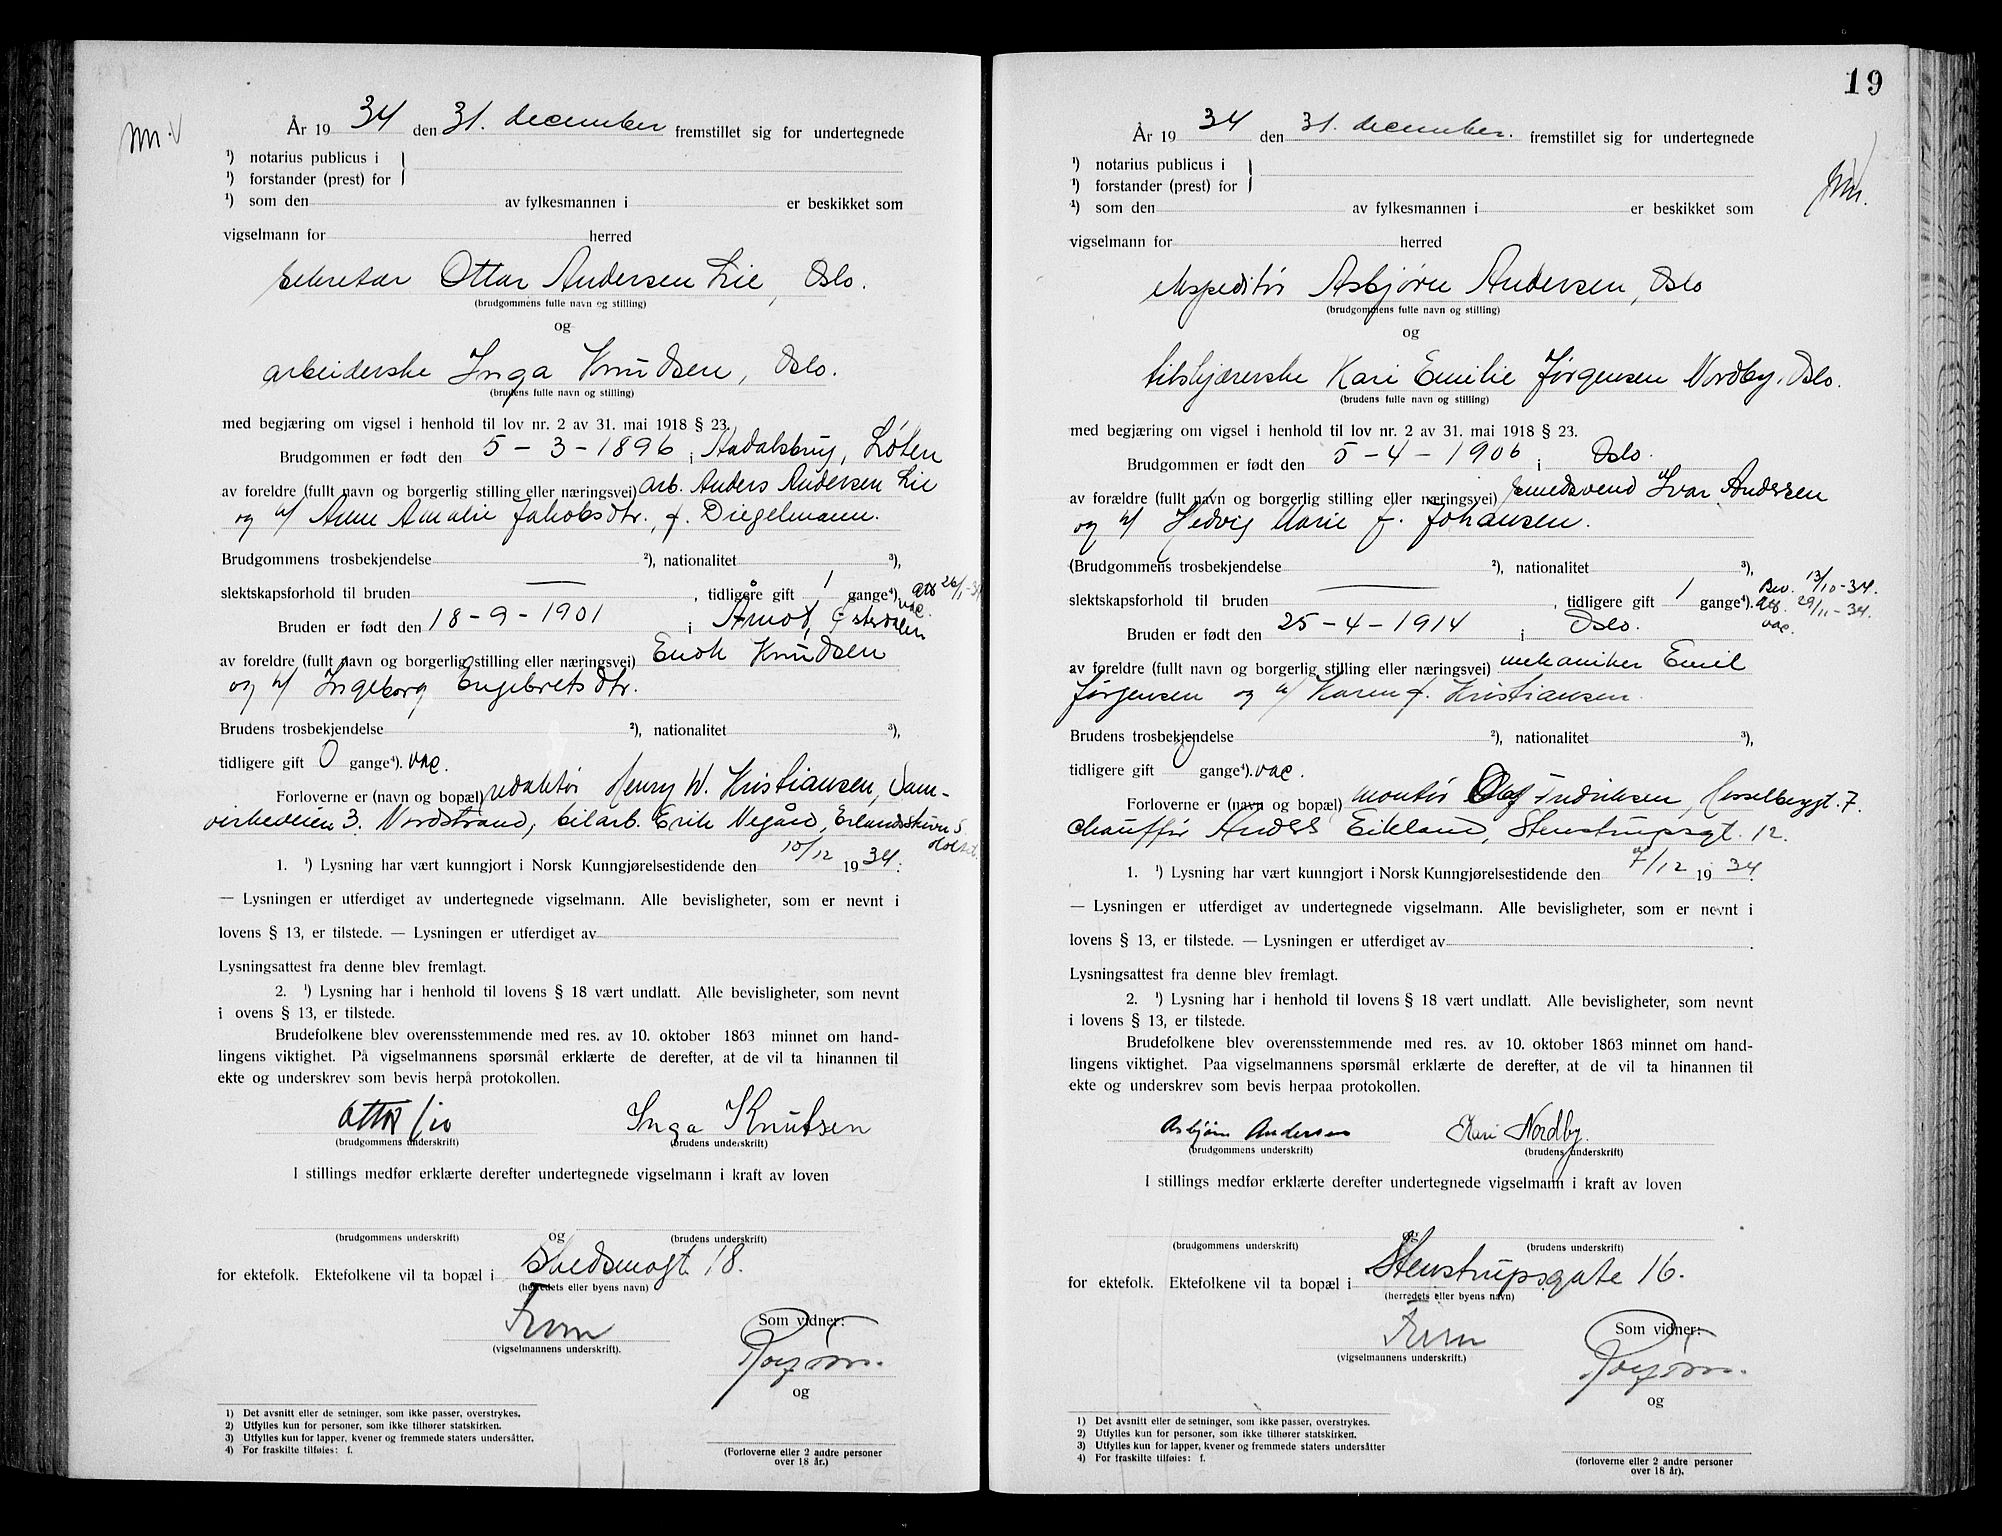 År 19 34 den 31. december fremstillet sig for undertegnede
¹) notarius publicus i
¹) forstander (prest) for
¹) som den av fylkesmannen i er beskikket som
vigselmann for herred
sekretær Ottar Andersen Lie, Oslo.
(brudgommens fulle navn og stilling)
og
arbeiderske Inga Knudsen, Oslo.
(brudens fulle navn og stilling)
med begjæring om vigsel i henhold til lov nr. 2 av 31. mai 1918 § 23.
Brudgommen er født den 5 - 3 - 1896 i Aadalsbrug, Løten
av foreldre (fullt navn og borgerlig stilling eller næringsvei) arb. Anders Andersen Lie
og h/ Anne Amalie Jakobsdtr., f. Diegelmann.
Brudgommens trosbekjendelse ²), nationalitet ³),
slektskapsforhold til bruden — , tidligere gift 1 gange⁴). att 26/1-34
vac.
Bruden er født den 18-9-1901 i Åmot, Østerdalen
av foreldre (fullt navn og borgerlig stilling eller næringsvei) Enok Knudsen
og h/ Ingeborg Engebretsdtr.
Brudens trosbekjendelse ²), nationalitet ³),
tidligere gift 0 gange⁴). vac.
Forloverne er (navn og bopæl) redaktør Henry W. Kristiansen, Sam-
virkeveien 3. Nordstrand, bilarb. Erik Vegård, Erlandsskiven 5
1. ¹) Lysning har vært kunngjort i Norsk Kunngjørelsestidende den 10/12 19 34.
— Lysningen er utferdiget av undertegnede vigselmann. Alle bevisligheter, som er nevnt i
lovens § 13, er tilstede. — Lysningen er utferdiget av
Lysningsattest fra denne blev fremlagt.
2. ¹) Lysning har i henhold til lovens § 18 vært undlatt. Alle bevisligheter, som nevnt
i ovens § 13, er tilstede.
Brudefolkene blev overensstemmende med res. av 10. oktober 1863 minnet om hand-
lingens viktighet. På vigselmannens spørsmål erklærte de derefter, at de vil ta hinannen til
ekte og underskrev som bevis herpå protokollen.
Ottar Lie Inga Knutsen
(brudgommens underskrift) (brudens underskrift)
I stillings medfør erklærte derefter undertegnede vigselmann i kraft av loven
og
(brudgommens underskrift) (brudens underskrift)
for ektefolk. Ektefolkene vil ta bopæl i Skedsmogt 18.
(herredets eller byens navn)
Som vidner:
(vigselmannens underskrift).
og
1) Det avsnitt eller de setninger, som ikke passer, overstrykes.
2) Utfylles kun for personer, som ikke tilhører statskirken.
3) Utfylles kun for lapper, kvener og fremmede staters undersåtter.
4) For fraskilte tilføies: f.
(Forloverne eller 2 andre personer
over 18 år.)
19
År 19 34 den 31. december. fremstillet sig for undertegnede
¹) notarius publicus i
¹) forstander (prest) for
¹) som den av fylkesmannen i er beskikket som
vigselmann for herred
ekspeditør Asbjørn Andersen, Oslo
(brudgommens fulle navn og stilling)
og
tilskjærerske Kari Emilie Jørgensen Nordby, Oslo.
(brudens fulle navn og stilling)
med begjæring om vigsel i henhold til lov nr. 2 av 31. mai 1918 § 23.
Brudgommen er født den 5-4-1906 i Oslo.
av forældre (fullt navn og borgerlig stilling eller næringsvei) smedsvend Ivar Andersen
og h/ Hedvig Marie f. Johansen.
(Brudgommens trosbekjendelse ²), nationalitet ³),
slektskapsforhold til bruden — , tidligere gift 1 gange⁴). Bev. 13/10-34.
att. 29/11-34.
vac.
Bruden er født den 25-4-1914 i Oslo.
av foreldre (fullt navn og borgerlig stilling eller næringsvei) mekaniker Emil
Jørgensen og h/ Karen f. Kristiansen.
Brudens trosbekjendelse ²), nationalitet ³),
tidligere gift 0 gange⁴). vac.
Forloverne er (navn og bopæl) montør Olaf Fredriksen, Hesselberggt. 7
chauffør Anders Eikland, Stenstrupsgt. 12.
1. ¹) Lysning har vært kunngjort i Norsk Kunngjørelsestidende den 7/12 19 34.
— Lysningen er utferdiget av undertegnede vigselmann. Alle bevisligheter, som er nevnt i
lovens § 13, er tilstede. — Lysningen er utferdiget av
Lysningsattest fra denne blev fremlagt.
2. ¹) Lysning har i henhold til lovens § 18 vært undlatt. Alle bevisligheter, som nevnt
i lovens § 13, er tilstede.
Brudefolkene blev overensstemmende med res. av 10. oktober 1863 minnet om hand-
lingens viktighet. Paa vigselmannens spørsmål erklærte de derefter, at de vil ta hinannen til
ekte og underskrev som bevis herpaa protokollen.
Asbjørn Andersen Kari Nordby.
(brudgommens underskrift) (brudens underskrift)
I stillings medfør erklærte derefter undertegnede vigselmann i kraft av loven
og
(brudgommens underskrift) (brudens underskrift)
for ektefolk. Ektefolkene vil ta bopæl i Stenstrupsgate 16.
(herredets eller byens navn)
Som vidner:
(vigselmannens underskrift.)
og
1) Det avsnitt eller de setninger, som ikke passer, overstrykes.
2) Utfylles kun for personer, som ikke tilhører statskirken.
3) Utfylles kun for lapper, kvener og fremmede staters undersåtter
4) For fraskilte tilføies: f.
(forloverne eller 2 andre personer
over 18 år).